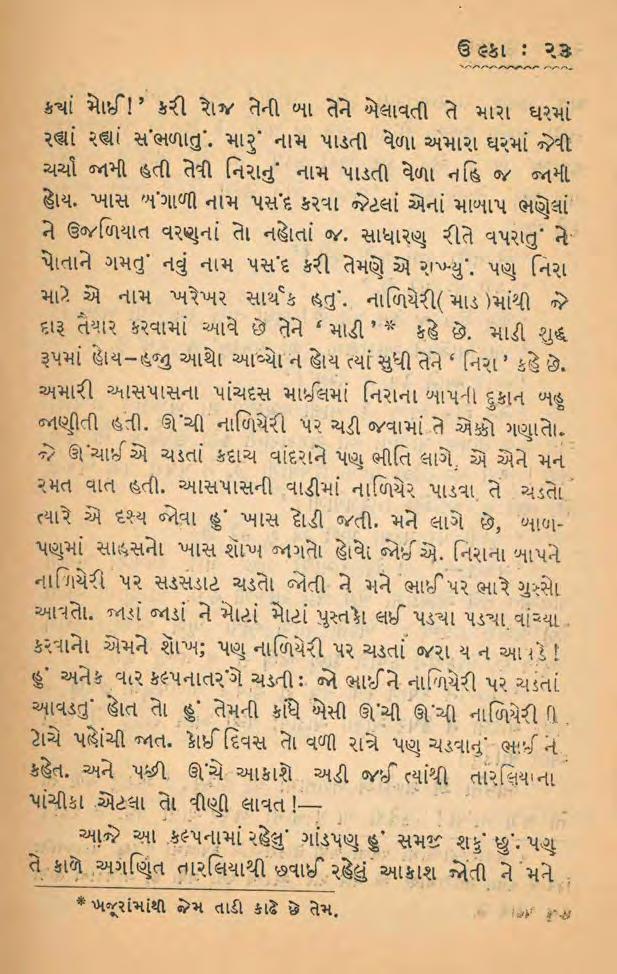 ઉલ્કા : ૨૩
ક્યાં મોઈ!’ કરી રોજ તેની બા તેને બોલાવતી તે મારા ઘરમાં
રહ્યાં રહ્યાં સંભળાતું. મારું નામ પાડતી વેળા અમારા ઘરમાં જેવી
ચર્ચા જામી હતી તેવી નિરાનું નામ પાડતી વેળા નહિ જ જામી
હોય. ખાસ બંગાળી નામ પસંદ કરવા જેટલાં એનાં માબાપ ભણેલાં
ને ઉજળિયાત વરણનાં તો નહોતાં જ. સાધારણ રીતે વપરાતું ને
પોતાને ગમતું નવું નામ પસંદ કરી તેમણે એ રાખ્યું. પણ નિરા
માટે એ નામ ખરેખર સાર્થક હતું. નાળિયેરી( માડ )માંથી જે
દારૂ તૈયાર કરવામાં આવે છે તેને ‘ માડી ’* કહે છે. માડી શુદ્ધ
રૂપમાં હોય–હજુ આથો આવ્યો ન હોય ત્યાં સુધી તેને ‘ નિરા ’ કહે છે.
અમારી આસપાસના પાંચદસ માઈલમાં નિરાના બાપની દુકાન બહુ
જાણીતી હતી. ઊંચી નાળિયેરી પર ચડી જવામાં તે એક્કો ગણાતો.
જે ઊંચાઈએ ચડતાં કદાચ વાંદરાને પણ ભીતિ લાગે, એ એને મન
રમત વાત હતી. આસપાસની વાડીમાં નાળિયેર પાડવા તે ચડતો
ત્યારે એ દૃશ્ય જોવા હું ખાસ દોડી જતી. મને લાગે છે, બાળ-
પણમાં સાહસનો ખાસ શોખ જાગતો હોવો જોઈએ. નિરાના બાપને
નાળિયેરી પર સડસડાટ ચડતો જોતી ને મને ભાઈ પર ભારે ગુસ્સો
આવતો. જાડાં જાડાં ને મોટાં મોટાં પુસ્તકો લઈ પડ્યા પડ્યા વાંચ્યા
કરવાનો એમને શોખ; પણ નાળિયેરી પર ચડતાં જરા ય ન આવડે!
હું અનેક વાર કલ્પનાતરંગે ચડતી : જો ભાઈને નાળિયેરી પર ચડતાં
આવડતું હોત તો હું તેમની કાંધે બેસી ઊંચી ઊંચી નાળિયેરીની
ટોચે પહોંચી જાત. કોઈ દિવસ તો વળી રાત્રે પણ ચડવાનું ભાઈને
કહેત. અને પછી ઊંચે આકાશે અડી જઈ ત્યાંથી તારલિયાના
પાંચીકા એટલા તો વીણી લાવત!—
આજે આ કલ્પનામાં રહેલું ગાંડપણ હું સમજી શકું છું. પણ
તે કાળે અગણિત તારલિયાથી છવાઈ રહેલું આકાશ જોતી ને મને
* ખજૂરાંમાંથી જેમ તાડી કાઢે છે તેમ.